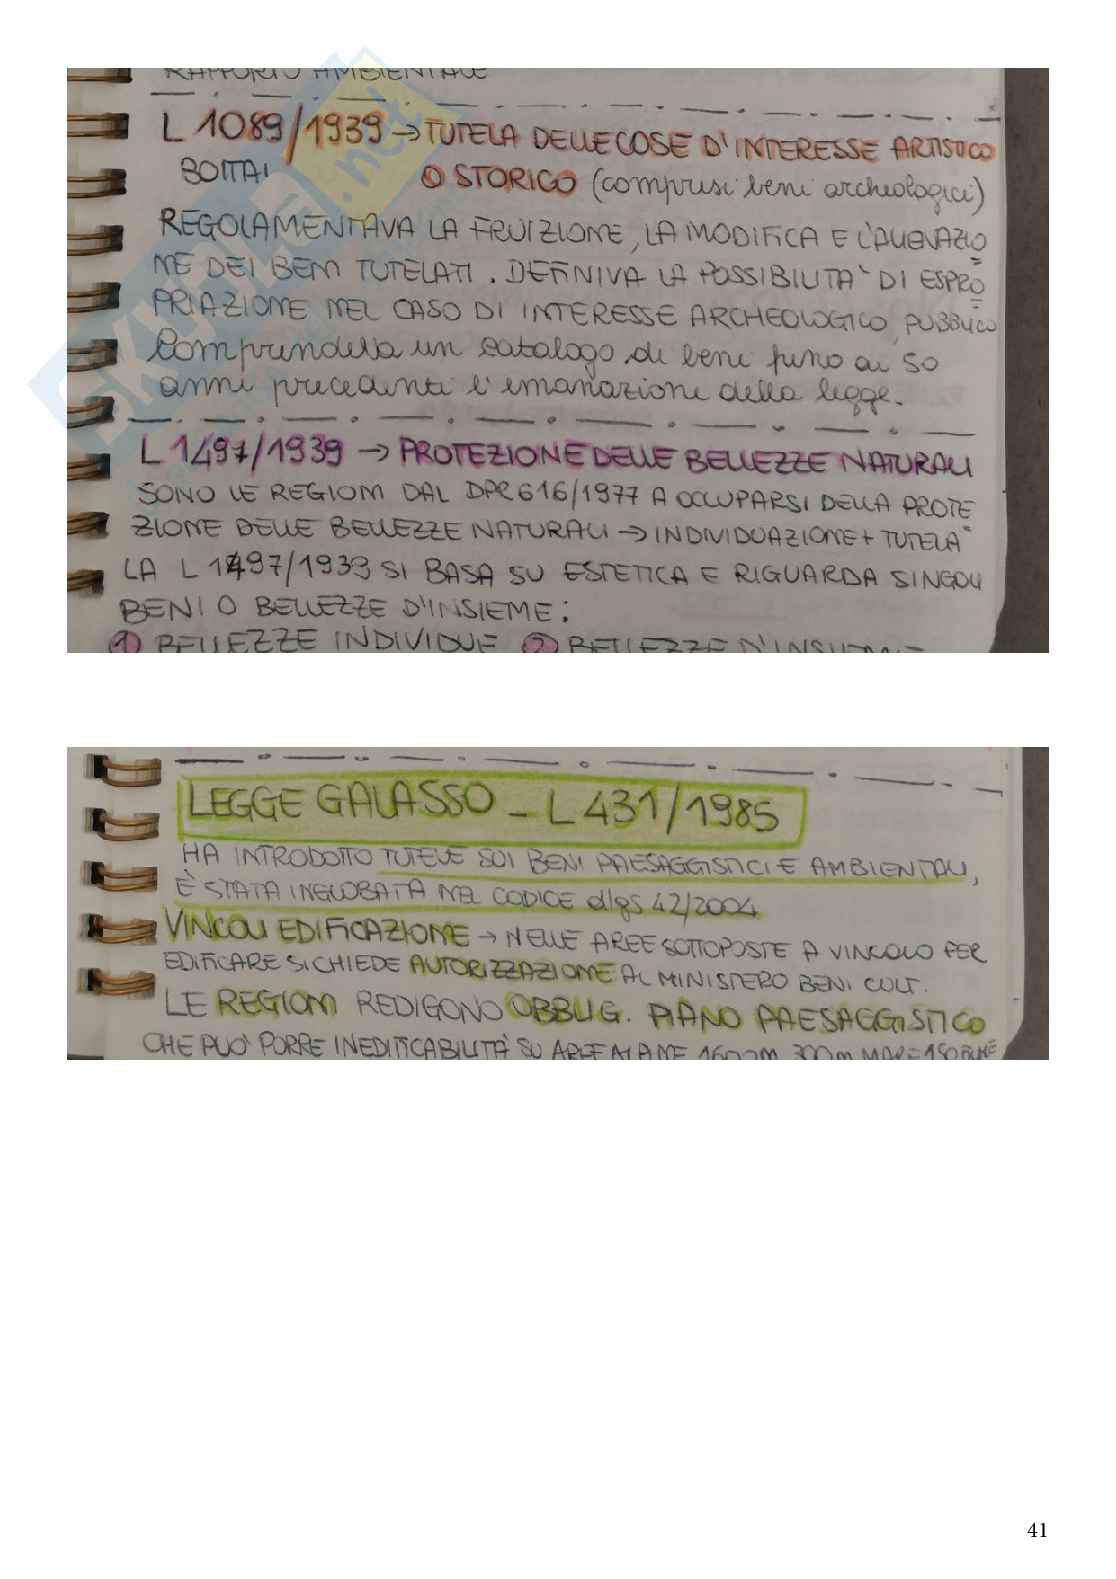 RAPPORTO AMBIENTALE
L 1089/1939 → TUTELA DELLE COSE D'INTERESSE ARTISTICO
BOTTAI O STORICO (compresi beni archeologici)
REGOLAMENTAVA LA FRUIZIONE, LA MODIFICA E L'ALIENAZIO
NE DEI BENI TUTELATI. DEFINIVA LA POSSIBILITA' DI ESPRO
PRIAZIONE NEL CASO DI INTERESSE ARCHEOLOGICO, PUBBLICO
Comprendeva un catalogo di beni fino ai 50
anni precedenti l'emanazione della legge.
L 1497/1939 → PROTEZIONE DELLE BELLEZZE NATURALI
SONO LE REGIONI DAL DPR 616/1977 A OCCUPARSI DELLA PROTE
ZIONE DELLE BELLEZZE NATURALI → INDIVIDUAZIONE + TUTELA
LA L 1497/1939 SI BASA SU ESTETICA E RIGUARDA SINGOLI
BENI O BELLEZZE D'INSIEME:
1 BELLEZZE INDIVIDUE 2 BELLEZZE D'INSIEME
LEGGE GALASSO - L 431/1985
HA INTRODOTTO TUTELE SUI BENI PAESAGGISTICI E AMBIENTALI,
È STATA INGLOBATA NEL CODICE d/gs 42/2004
VINCOLI EDIFICAZIONE → NELLE AREE SOTTOPOSTE A VINCOLO PER
EDIFICARE SI CHIEDE AUTORIZZAZIONE AL MINISTERO BENI CULT.
LE REGIONI REDIGONO OBBLIG. PIANO PAESAGGISTICO
CHE PUO' PORRE INEDIFICABILITÀ SU AREE ALPINE 1600m, 300m MARE 150 FIUME
41